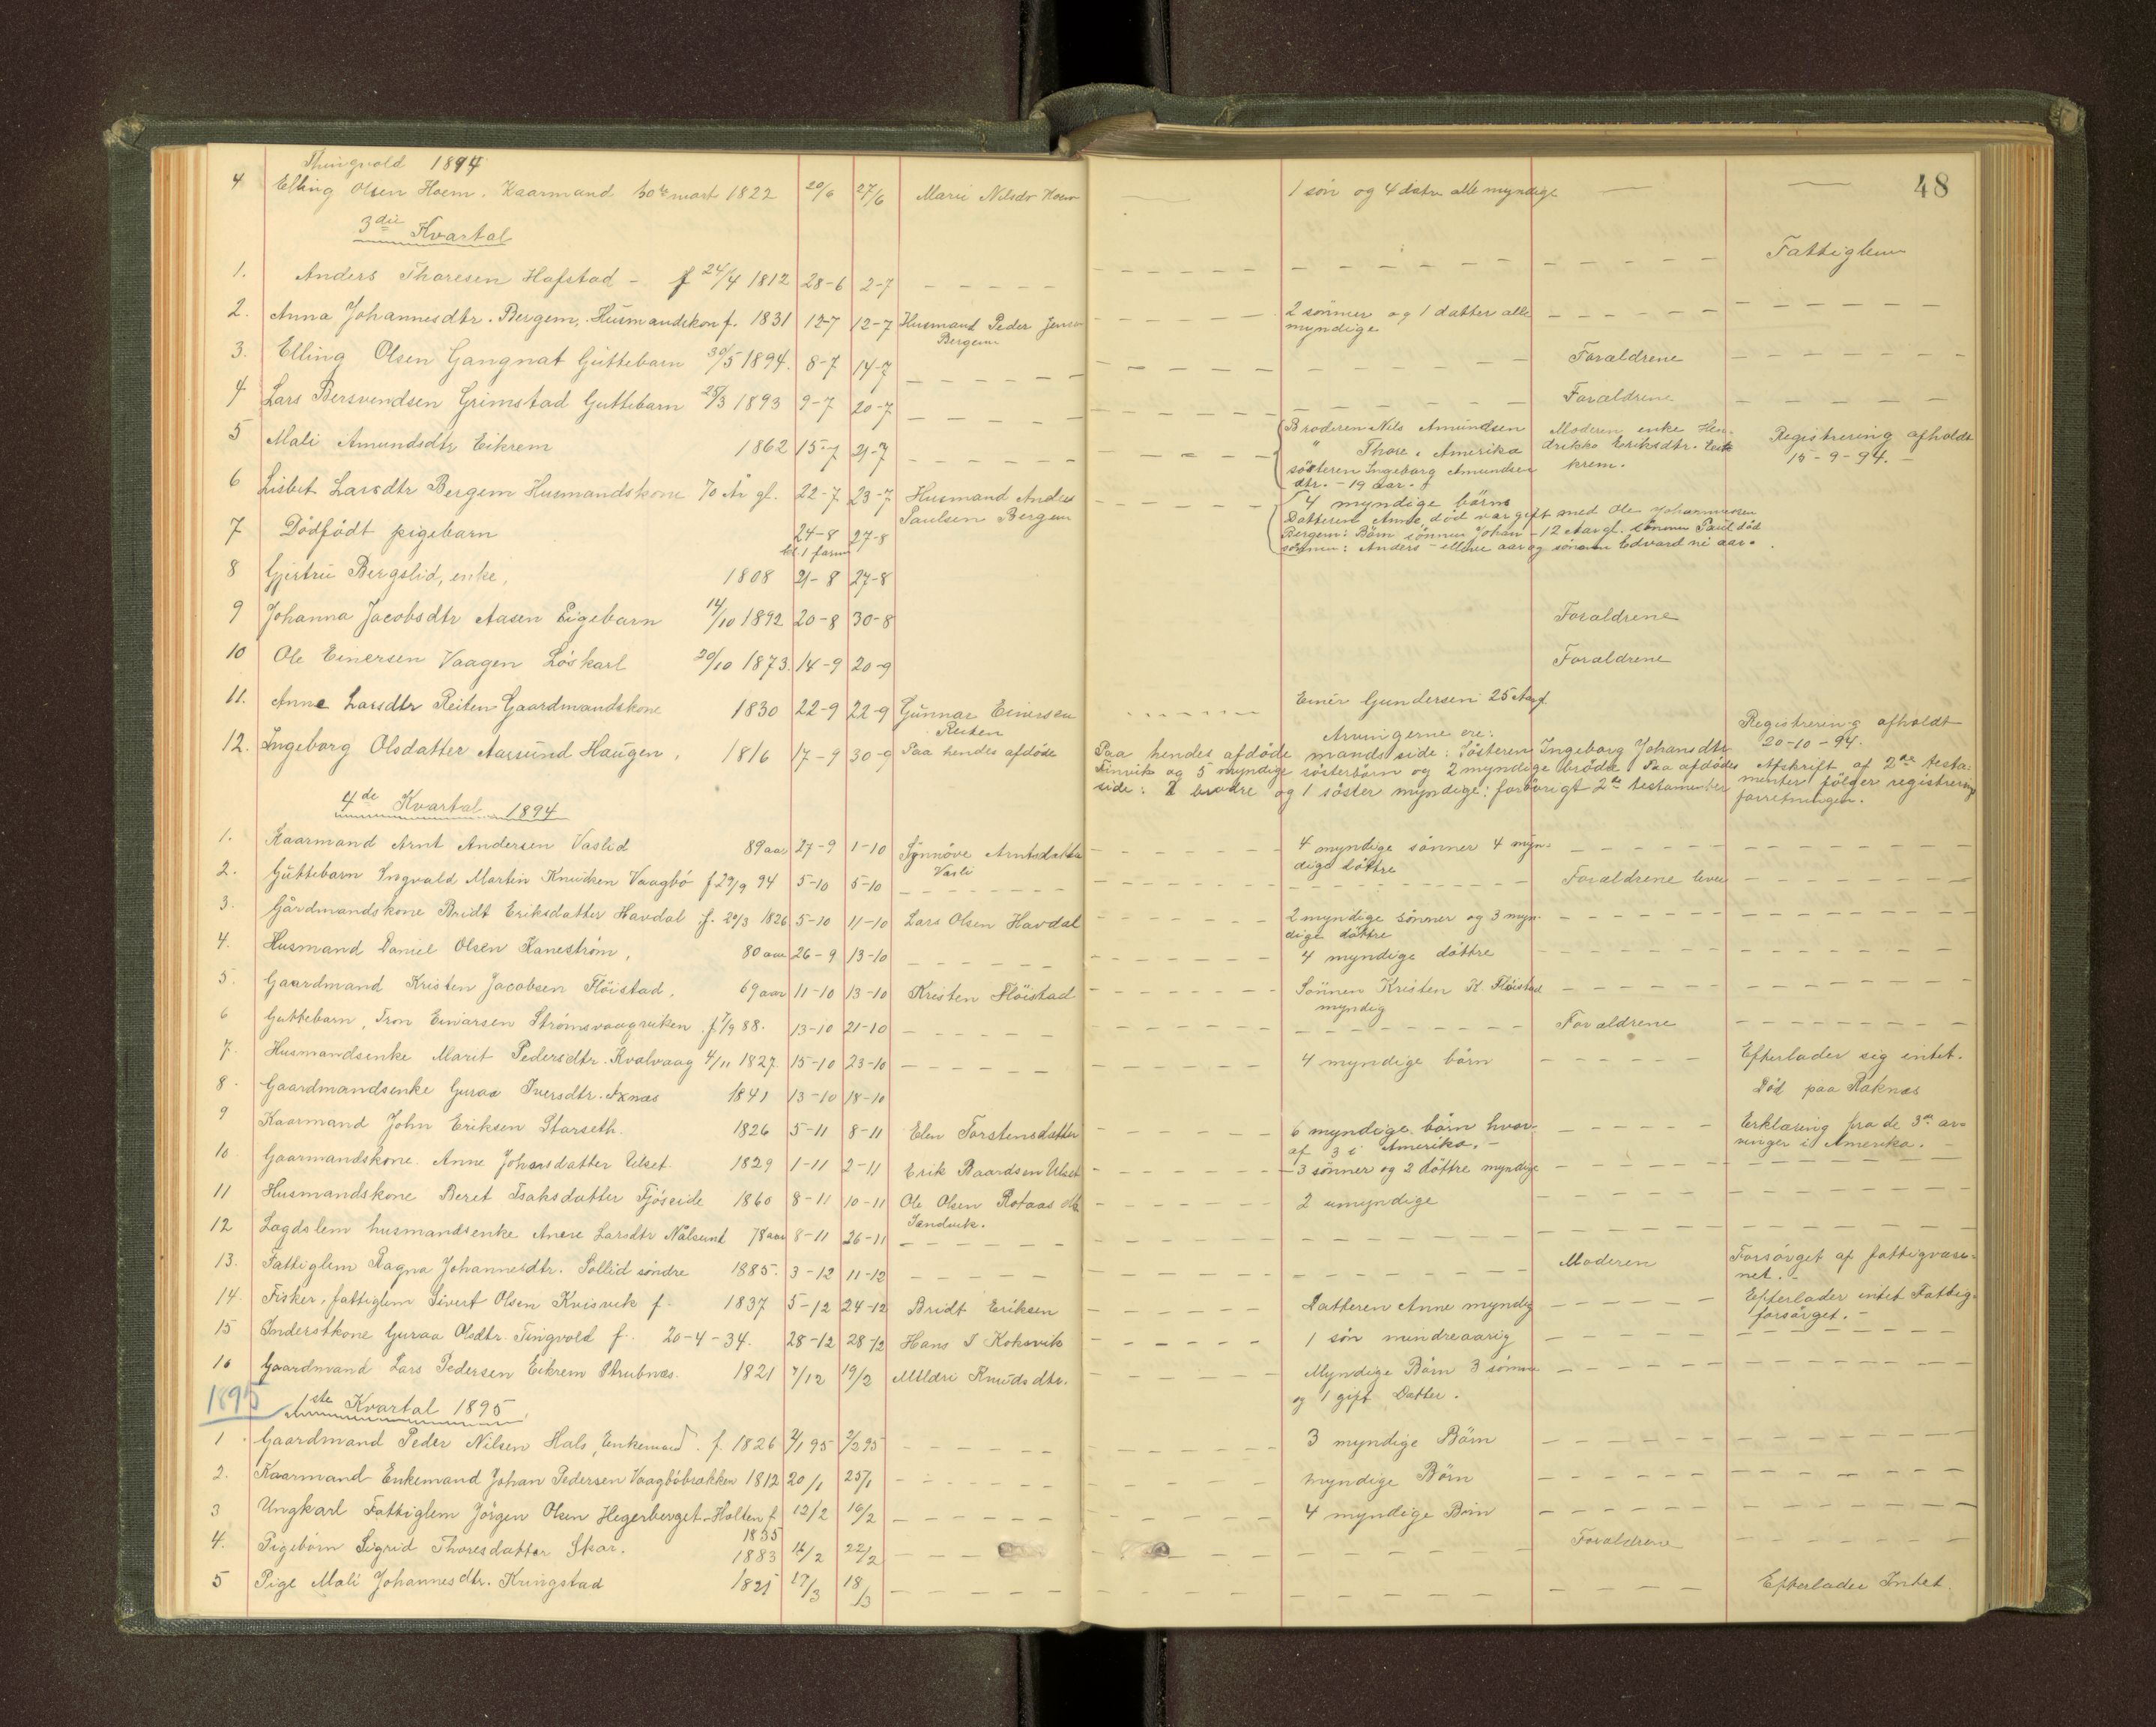 Thingvold 1894
48
4 Elling Olsen Hoem. Kaarmand 30te mart 1822 20/6 27/6 Marie Nilsdr Hoem 1 sön og 4 døtre alle myndige
3die Kvartal
Fattiglem
1. Anders Thoresen Hafstad - f 24/4 1812 28-6 2-7
2. Anna Johannesdtr. Bergem, Husmandskon f. 1831 12-7 12-7 Husmand Peder Jens 2 sönner og 1 datter alle
Bergem myndige
3. Elling Olsen Gangnat Guttebarn 30/5 1894. 8-7 14-7 Forældrene
4 Lars Bersvendsen Grimstad Guttebarn 25/3 1893 9-7 20-7 Forældrene
5 Mali Amundsdtr Eikrem 1862 15-7 21-7 Broderen Nils Amundsen Moderen enke Hen-
" Thore i Amerika drikke Eriksdtr. Eik Registrering afholdt
sösteren Ingeborg Amundsen krem. 15-9-94.-
dtr. - 19 aar.
6 Lisbet Larsdtr Bergem Husmandskone 70 År gl. 22-7 23-7 Husmand Anders
Paulsen Bergem
4 myndige börn
Datteren Anne, död var gift med Ole Johannessen
Bergem: Börn sönnen Johan - 12 Aar gl. sönnen Paul död
sönnen: Anders - elleve aar og sönnen Edvard ni aar.
7 Dödfödt pigebarn 24-8 27-8
8 Gjertru Bergslid, enke, 1808 21-8 27-8
9 Johanna Jacobsdtr Aasen Pigebarn 14/10 1892 20-8 30-8 Forældrene
10 Ole Einersen Vaagen Löskarl 20/10 1873. 14-9 20-9 Forældrene
11. Anne Larsdtr Reiten Gaardmandskone 1830 22-9 22-9 Gunnar Einersen Einer Gundersen 25 Aar
Reiten
12. Ingeborg Olsdatter Aarsund Haugen, 1816 17-9 30-9 Paa hendes afdöde
Arvingerne ere: Registrering afholdt
20-10-94.
Paa hendes afdöde mands side: Sösteren Ingeborg Johansdtr
Finvik og 5 myndige sösterbörn og 2 myndige brödre. Paa afdödes Afskrift af 2de testa-
side: 2 brödre og 1 söster myndige: forövrigt 2de testamenter menter fölger registrerings
forretningen.
4de Kvartal 1894
1. Kaarmand Arnt Andersen Vaslid 89 aar 27-9 1-10 Synnöve Arntsdatter 4 myndige sönner 4 myn-
Vasli dige döttre
2. Guttebarn Ingvald Martin Knudsen Vaagbö f 29/9 94 5-10 5-10 Forældrene lever
3. Gårdmandskone Bridt Eriksdatter Havdal f. 20/3 1826 5-10 11-10 Lars Olsen Havdal 2 myndige sönner og 3 myn-
dige döttre
4. Husmand Daniel Olsen Kaneström, 80 aar 26-9 13-10 4 myndige döttre
5. Gaardmand Kristen Jacobsen Flöistad, 69 aar 11-10 13-10 Kristen Flöistad Sönnen Kristen K. Flöistad
myndig
6 Guttebarn, Tron Einarsen Strömsvaagviken f 7/9 88. 13-10 21-10 Forældrene
7. Husmandsenke Marit Pedersdtr. Kvalvaag 4/11 1827 15-10 23-10 4 myndige börn Efterlader sig intet.
8. Gaardmandsenke Guraa Iversdtr. Axnæs 1841 13-10 18-10 Död paa Raknæs
9 Kaarmand John Eriksen Storseth 1826 5-11 8-11 Elen Torstensdatter 6 myndige börn hvor- Erklæring fra de 3de ar-
af 3 i Amerika.- vinger i Amerika.-
10. Gaarmandskone. Anne Johansdatter Ulset. 1829 1-11 2-11 Erik Baardsen Ulset 3 sönner og 2 döttre myndige
11 Husmandskone Beret Isaksdatter Fjöseide 1860 8-11 10-11 Ole Olsen Rotaas 2 umyndige
Sandvik.
12 Lagdslem husmandsenke Anne Larsdtr Nålsund 78 aar 8-11 26-11
13. Fattiglem Ragna Johannesdtr. Sollid söndre 1885. 3-12 11-12 Moderen Forsörget af fattigvæse-
net.-
14. Fisker, fattiglem Sivert Olsen Kvisvik f. 1837 5-12 24-12 Bridt Eriksen Datteren Anne myndig Efterlader intet Fattig-
forsörget.-
15 Inderstkone Guraa Olsdtr. Tingvold f. 20-4-34. 28-12 28-12 Hans I Koksvik 1 sön mindreaarig
16 Gaardmand Lars Pedersen Eikrem Strubnæs. 1821 7/12 19/2 Mildri Knudsdtr. Myndige Börn 3 sönner
og 1 gift Datter.
1895
1ste Kvartal 1895
1. Gaardmand Peder Nilsen Hals, Enkemand. f. 1826 2/1 95 2/2 95 3 myndige Börn
2. Kaarmand Enkemand Johan Pedersen Vaagböbrakken 1812 20/1 25/1 myndige Börn
3 Ungkarl Fattiglem Jörgen Olsen Hegerberget-Holten f 12/2 16/2 4 myndige Börn
1835
4. Pigebörn Sigrid Thoresdatter Skar. 1883 16/2 22/2 Forældrene
5 Pige Mali Johannesdtr. Kringstad 1825 17/3 18/3 Efterlader Intet.